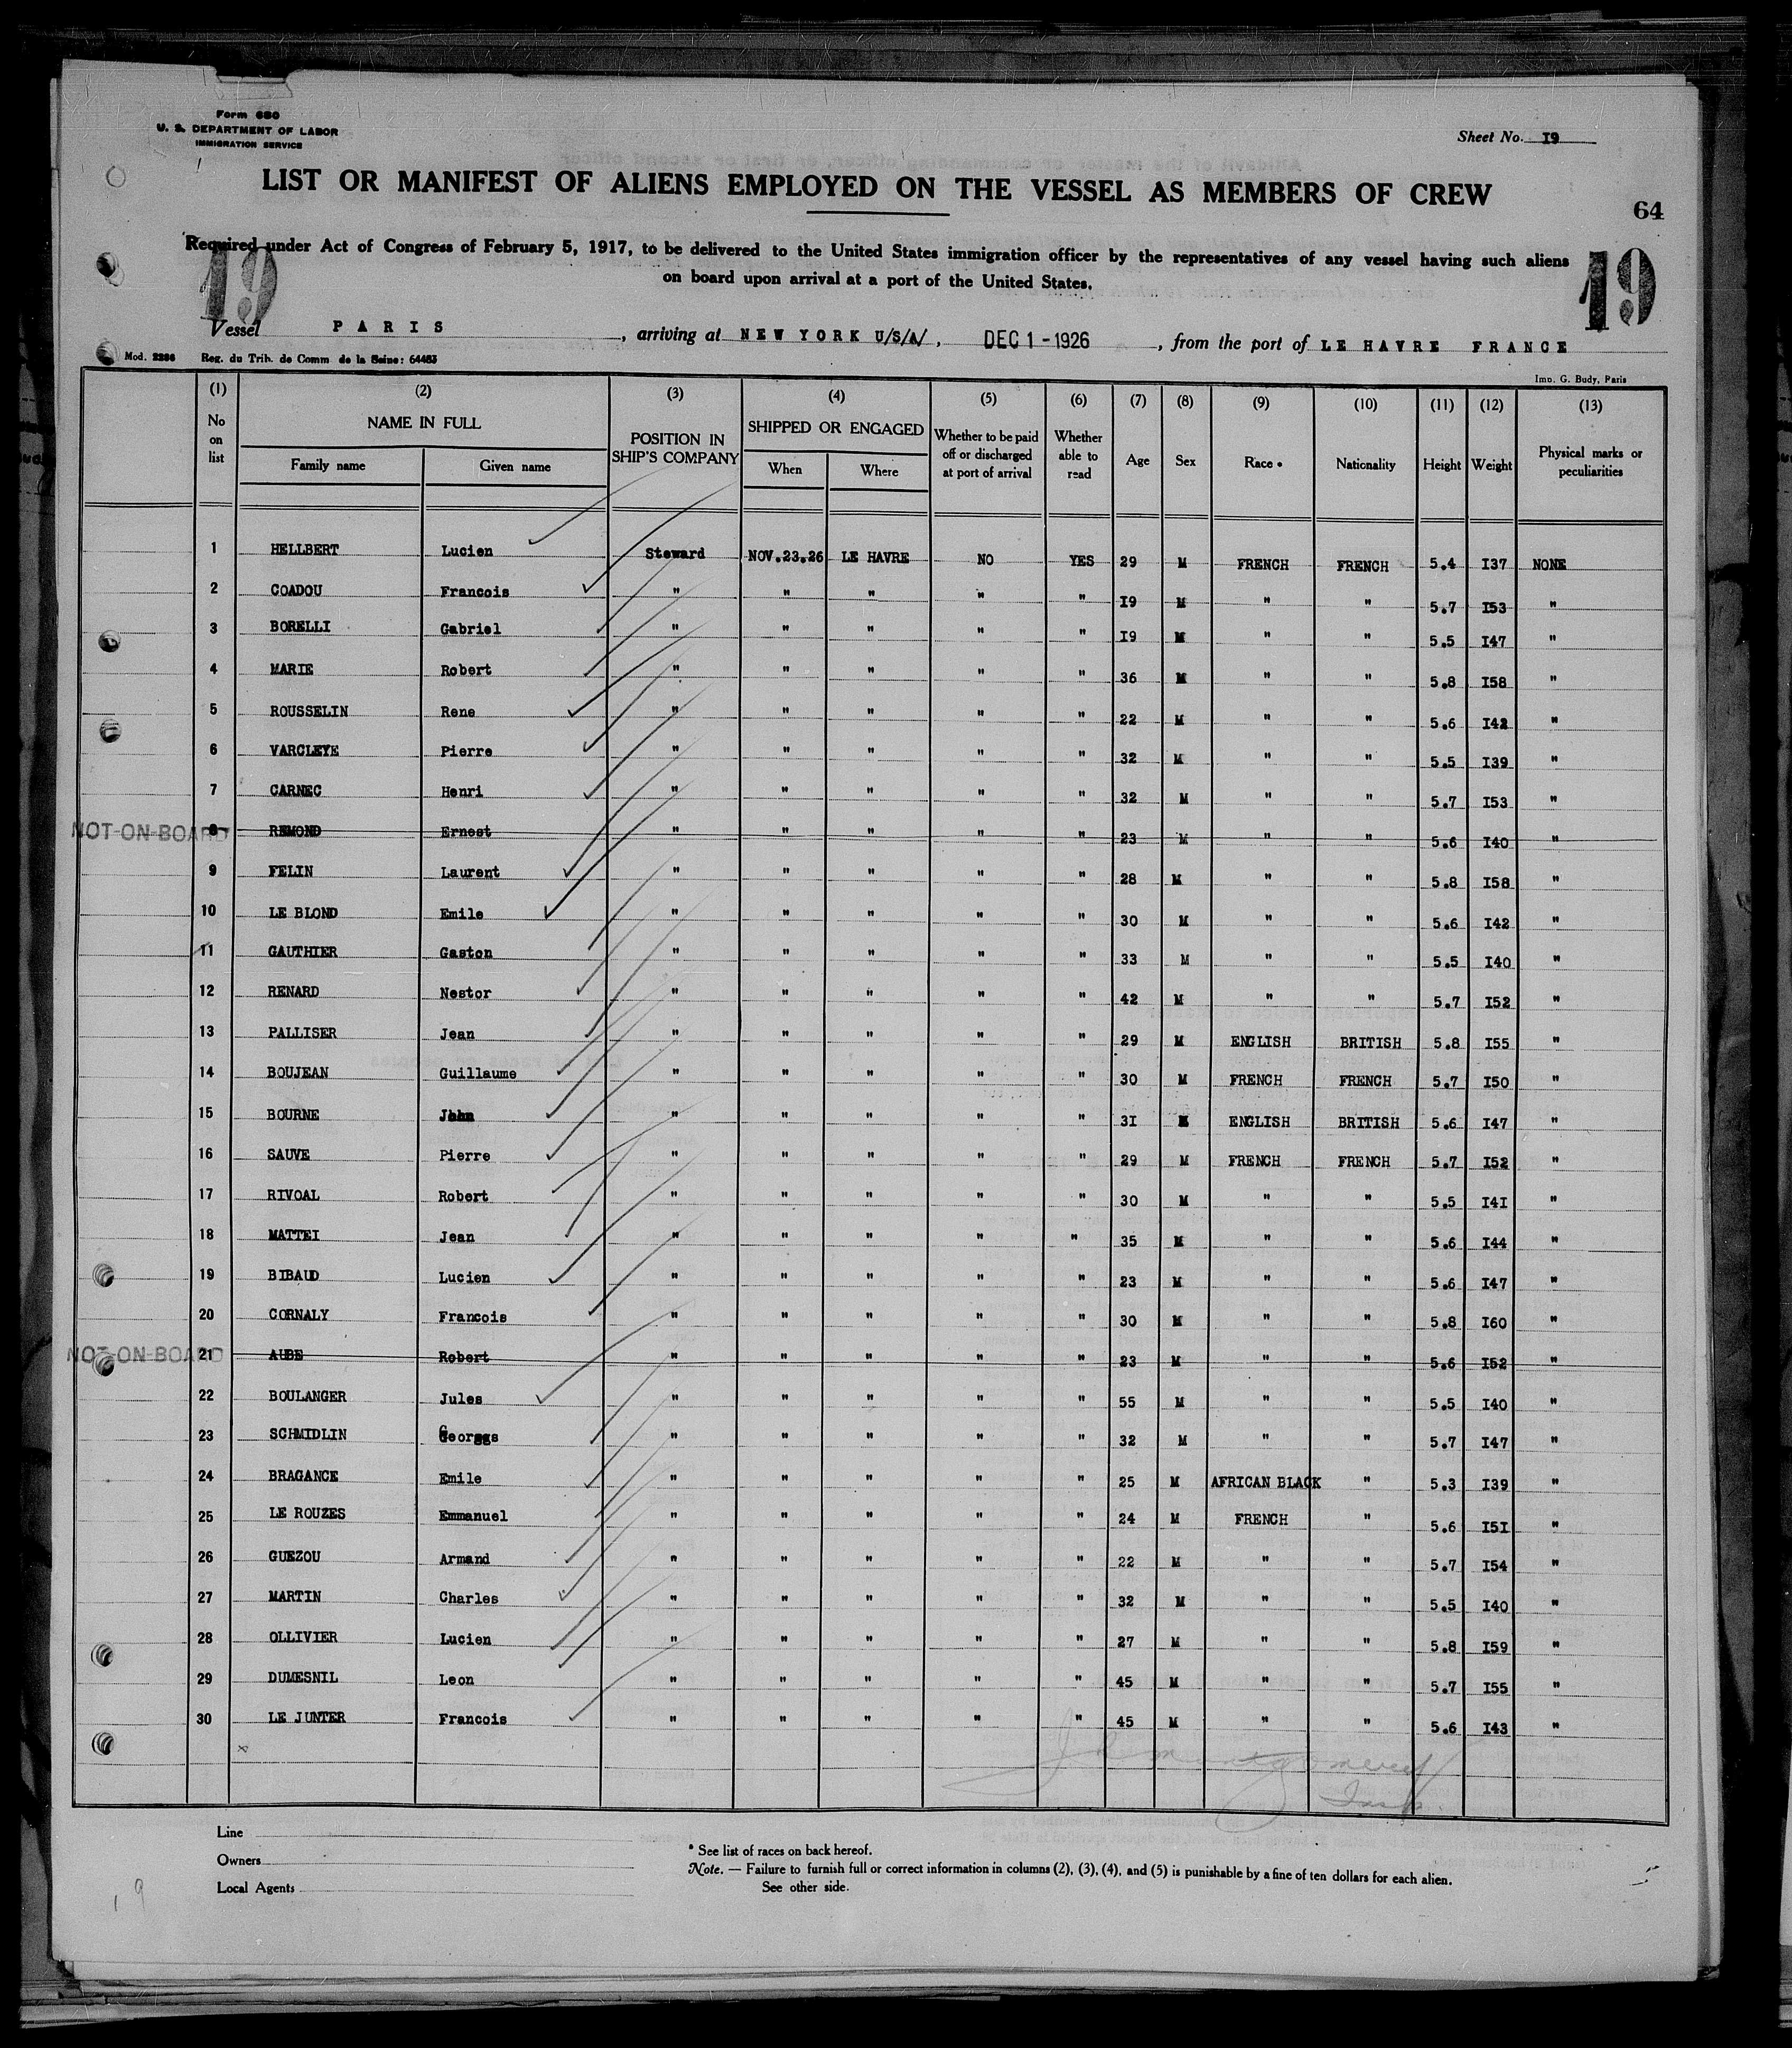 Form 680
U. S. DEPARTMENT OF LABOR
IMMIGRATION SERVICE
Sheet No. I9
LIST OR MANIFEST OF ALIENS EMPLOYED ON THE VESSEL AS MEMBERS OF CREW
64
Required under Act of Congress of February 5, 1917, to be delivered to the United States immigration officer by the representatives of any vessel having such aliens
on board upon arrival at a port of the United States.
19
19
Vessel PARIS, arriving at NEW YORK U/S/A/, DEC 1 - 1926, from the port of LE HAVRE FRANCE
Mod. 2286 Reg. du Trib. de Comm. de la Seine: 64483
Imp. G. Budy, Paris
(1) (2) (3) (4) (5) (6) (7) (8) (9) (10) (11) (12) (13)
No on list NAME IN FULL Family name Given name POSITION IN SHIP'S COMPANY SHIPPED OR ENGAGED When Where Whether to be paid off or discharged at port of arrival Whether able to read Age Sex Race * Nationality Height Weight Physical marks or peculiarities
1 HELLBERT Lucien Steward NOV.23.26 LE HAVRE NO YES 29 M FRENCH FRENCH 5.4 I37 NONE
2 COADOU Francois " " " " " I9 M " " 5.7 I53 "
3 BORELLI Gabriel " " " " " I9 M " " 5.5 I47 "
4 MARIE Robert " " " " " 36 M " " 5.8 I58 "
5 ROUSSELIN Rene " " " " " 22 M " " 5.6 I42 "
6 VARCLEYE Pierre " " " " " 32 M " " 5.5 I39 "
7 CARNEC Henri " " " " " 32 M " " 5.7 I53 "
NOT-ON-BOARD 8 REMOND Ernest " " " " " 23 M " " 5.6 I40 "
9 FELIN Laurent " " " " " 28 M " " 5.8 I58 "
10 LE BLOND Emile " " " " " 30 M " " 5.6 I42 "
11 GAUTHIER Gaston " " " " " 33 M " " 5.5 I40 "
12 RENARD Nestor " " " " " 42 M " " 5.7 I52 "
13 PALLISER Jean " " " " " 29 M ENGLISH BRITISH 5.8 I55 "
14 BOUJEAN Guillaume " " " " " 30 M FRENCH FRENCH 5.7 I50 "
15 BOURNE John " " " " " 3I M ENGLISH BRITISH 5.6 I47 "
16 SAUVE Pierre " " " " " 29 M FRENCH FRENCH 5.7 I52 "
17 RIVOAL Robert " " " " " 30 M " " 5.5 I4I "
18 MATTEI Jean " " " " " 35 M " " 5.6 I44 "
19 BIBAUD Lucien " " " " " 23 M " " 5.6 I47 "
20 CORNALY Francois " " " " " 30 M " " 5.8 I60 "
NOT-ON-BOARD 21 AUBE Robert " " " " " 23 M " " 5.6 I52 "
22 BOULANGER Jules " " " " " 55 M " " 5.5 I40 "
23 SCHMIDLIN Georges " " " " " 32 M " " 5.7 I47 "
24 BRAGANCE Emile " " " " " 25 M AFRICAN BLACK " 5.3 I39 "
25 LE ROUZES Emmanuel " " " " " 24 M FRENCH " 5.6 I5I "
26 GUEZOU Armand " " " " " 22 M " " 5.7 I54 "
27 MARTIN Charles " " " " " 32 M " " 5.5 I40 "
28 OLLIVIER Lucien " " " " " 27 M " " 5.8 I59 "
29 DUMESNIL Leon " " " " " 45 M " " 5.7 I55 "
30 LE JUNTER Francois " " " " " 45 M " " 5.6 I43 "
Montgomery
Insp.
Line
Owners
Local Agents
* See list of races on back hereof.
Note. — Failure to furnish full or correct information in columns (2), (3), (4), and (5) is punishable by a fine of ten dollars for each alien.
See other side.
19